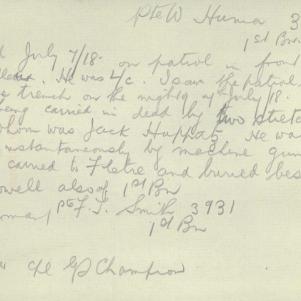 Pte W Huma 3
1st Bn
d July 7/18 - on patrol in front
He was L/c. I saw the patrol
trench on the night of July 18.
eing carried in dead by two stretc
whom was Jack He was
nstantaneously by machine gun
carried to Fletre and buried bes
owell also of 1st Bn
Pte F. J. Smith 3931
1st Bn
c/e Champion